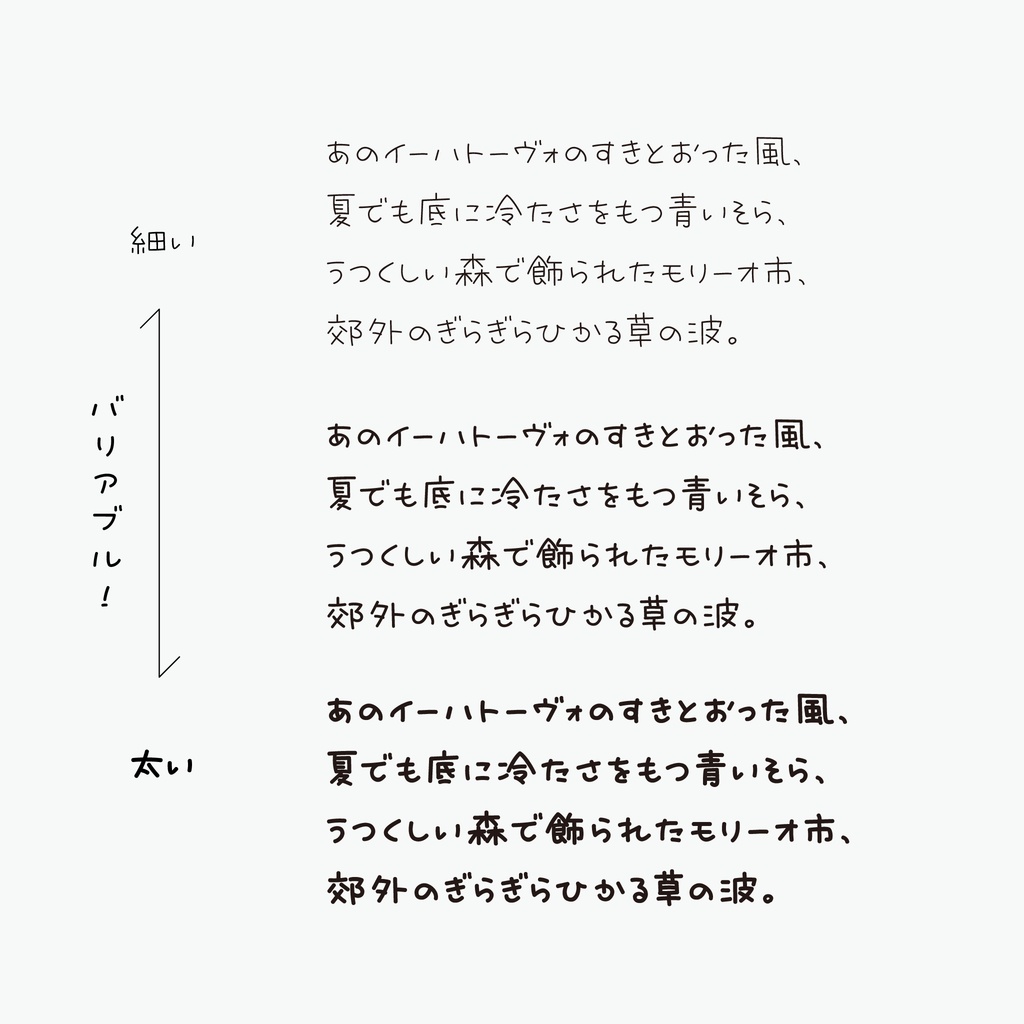 あのイーハトーヴォのすきとおった風、
夏でも底に冷たさをもつ青いそら、
うつくしい森で飾られたモリーオ市、
郊外のぎらぎらひかる草の波。
細い
バリアブル！
あのイーハトーヴォのすきとおった風、
夏でも底に冷たさをもつ青いそら、
うつくしい森で飾られたモリーオ市、
郊外のぎらぎらひかる草の波。
太い
あのイーハトーヴォのすきとおった風、
夏でも底に冷たさをもつ青いそら、
うつくしい森で飾られたモリーオ市、
郊外のぎらぎらひかる草の波。